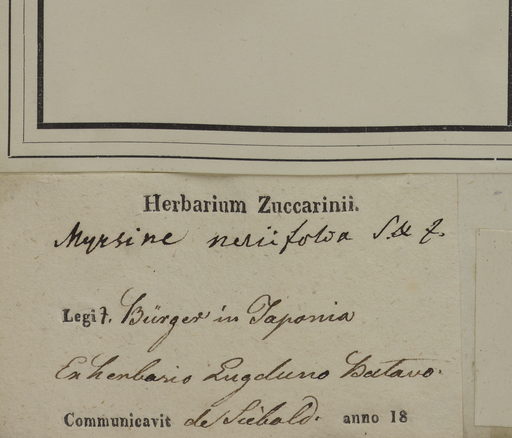 Herbarium Zuccarinii.
Myrsine neriifolia S. & Z.
Legit. Bürger in Japonia
Ex herbario Lugduno Batavo.
Communicavit de Siebold. anno 18